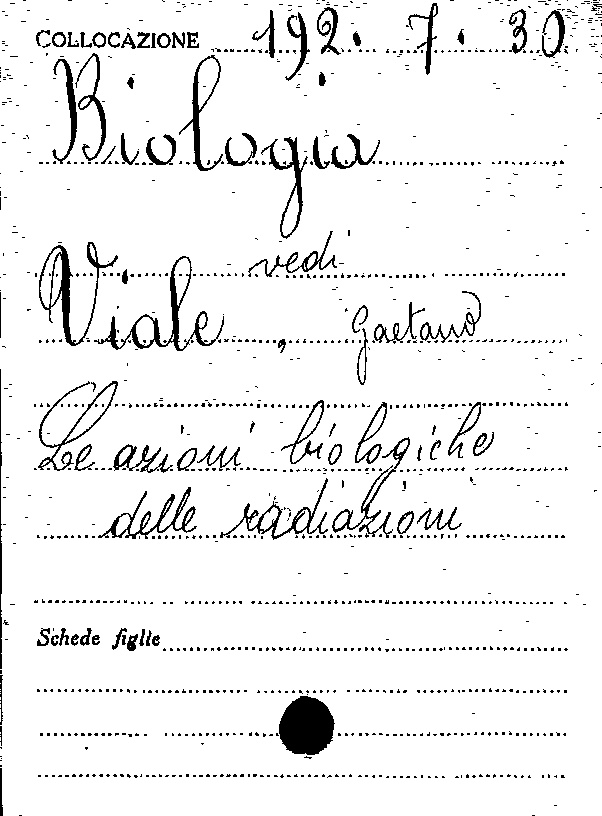 COLLOCAZIONE 192. 7. 30
Biologia
vedi
Viale, Gaetano
Le azioni biologiche
delle radiazioni
Schede figlie